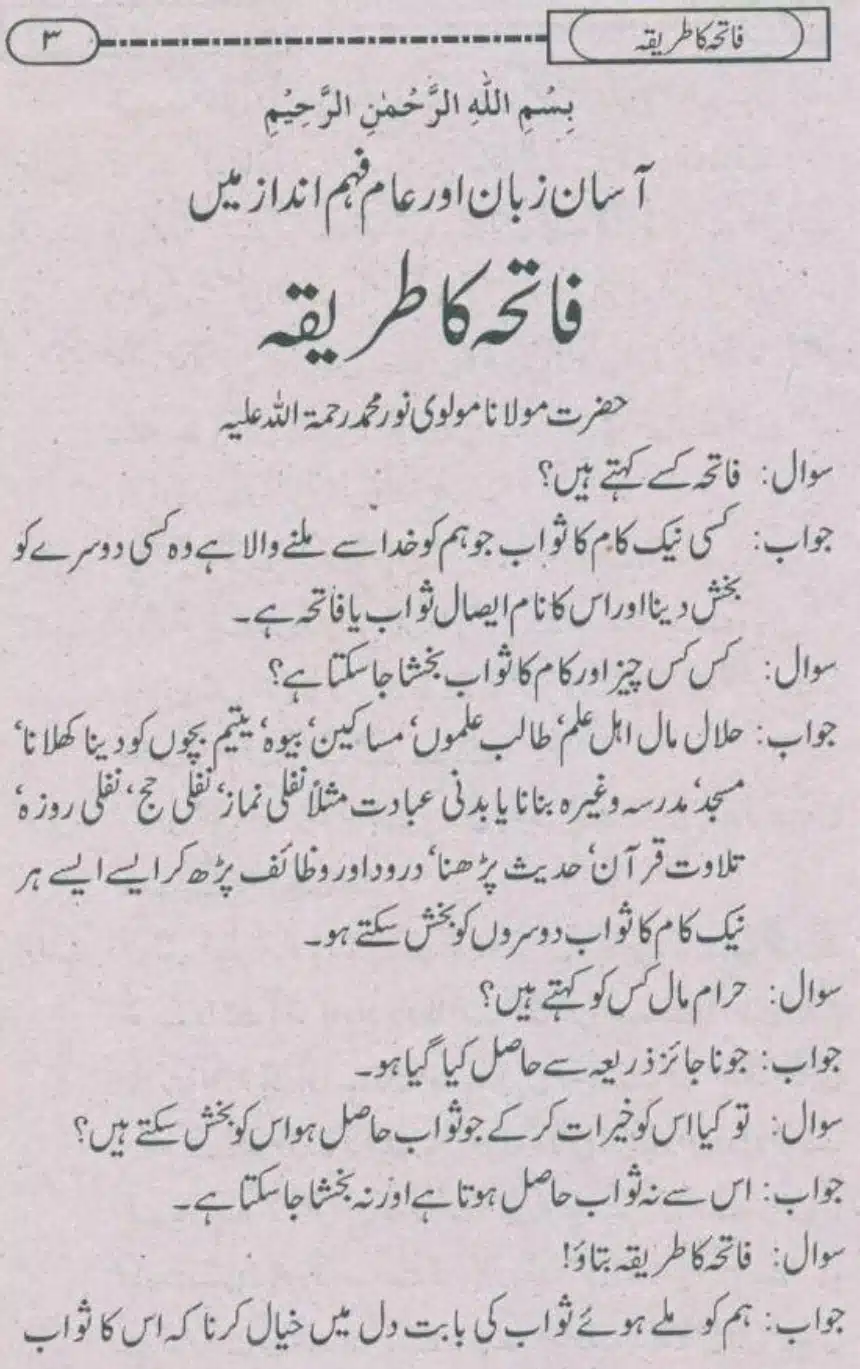 فاتحہ کا طریقہ ۳
بِسْمِ اللهِ الرَّحْمٰنِ الرَّحِيْمِ
آسان زبان اور عام فہم انداز میں
فاتحہ کا طریقہ
حضرت مولانا مولوی نور محمد رحمۃ اللہ علیہ
سوال: فاتحہ کسے کہتے ہیں؟
جواب: کسی نیک کام کا ثواب جو ہم کو خدا سے ملنے والا ہے وہ کسی دوسرے کو
بخش دینا اور اس کا نام ایصال ثواب یا فاتحہ ہے۔
سوال: کس کس چیز اور کام کا ثواب بخشا جا سکتا ہے؟
جواب: حلال مال اہل علم، طالب علموں، مساکین، بیوہ، یتیم بچوں کو دینا کھلانا،
مسجد، مدرسہ وغیرہ بنانا یا بدنی عبادت مثلاً نفلی نماز، نفلی حج، نفلی روزہ،
تلاوت قرآن، حدیث پڑھنا، درود اور وظائف پڑھ کر ایسے ایسے ہر
نیک کام کا ثواب دوسروں کو بخش سکتے ہو۔
سوال: حرام مال کس کو کہتے ہیں؟
جواب: جو ناجائز ذریعہ سے حاصل کیا گیا ہو۔
سوال: تو کیا اس کو خیرات کر کے جو ثواب حاصل ہو اس کو بخش سکتے ہیں؟
جواب: اس سے نہ ثواب حاصل ہوتا ہے اور نہ بخشا جا سکتا ہے۔
سوال: فاتحہ کا طریقہ بتاؤ!
جواب: ہم کو ملے ہوئے ثواب کی بابت دل میں خیال کرنا کہ اس کا ثواب